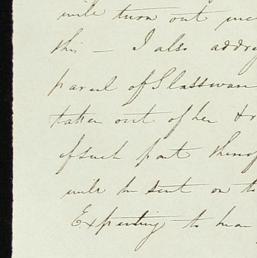 will turn out
this — I also addre
parcel of Glassware
taken out of her & r
of such part thereof
will be sent on to
Expecting to hear